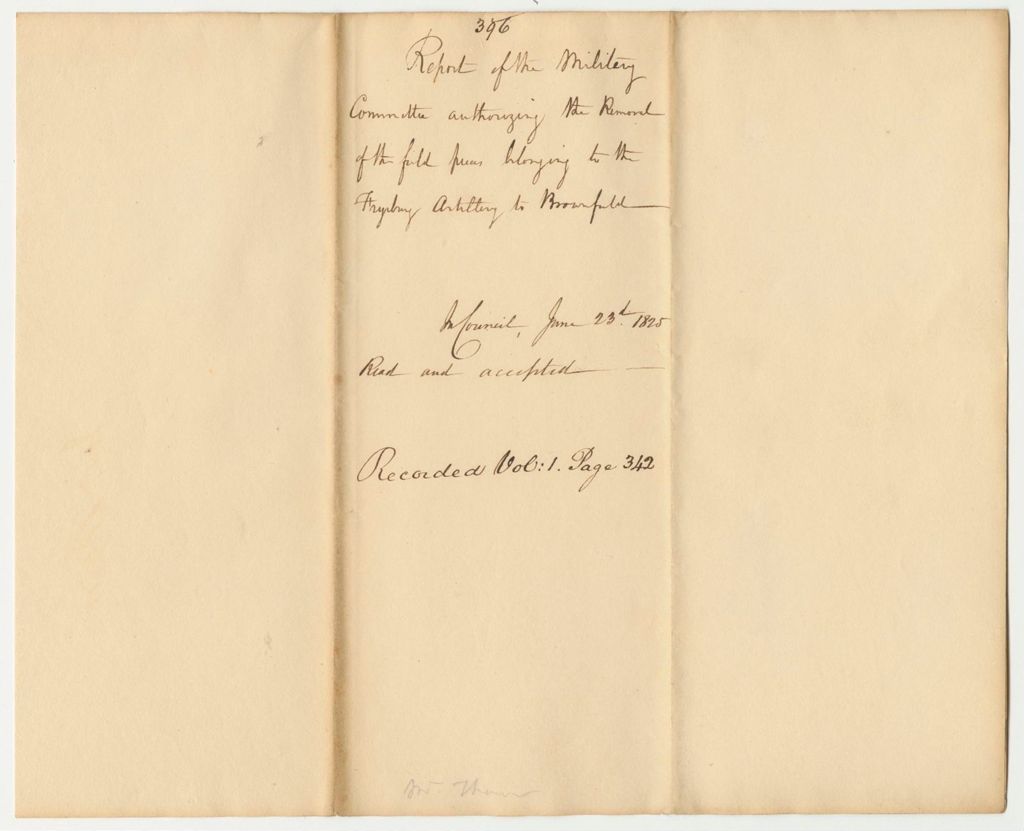 396
Report of the Military
Committee authorizing the Removal
of the field pieces belonging to the
Fryeburg Artillery to Brownfield
In Council, June 23d. 1825
Read and accepted
Recorded Vol: 1. Page 342